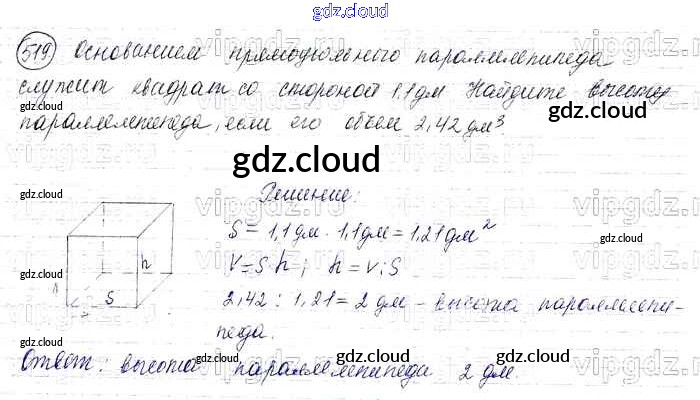 gdz.cloud
519 Основанием прямоугольного параллелепипеда
служит квадрат со стороной 1,1 дм Найдите высоту
параллелепипеда, если его объем 2,42 дм³.
gdz.cloud
gdz.cloud
Решение:
S = 1,1 дм · 1,1 дм = 1,21 дм²
V = S h ; h = V : S
2,42 : 1,21 = 2 дм - высота параллелепи-
педа.
h
S
Ответ: высота параллелепипеда 2 дм.
gdz.cloud
gdz.cloud
gdz.cloud
gdz.cloud
gdz.cloud